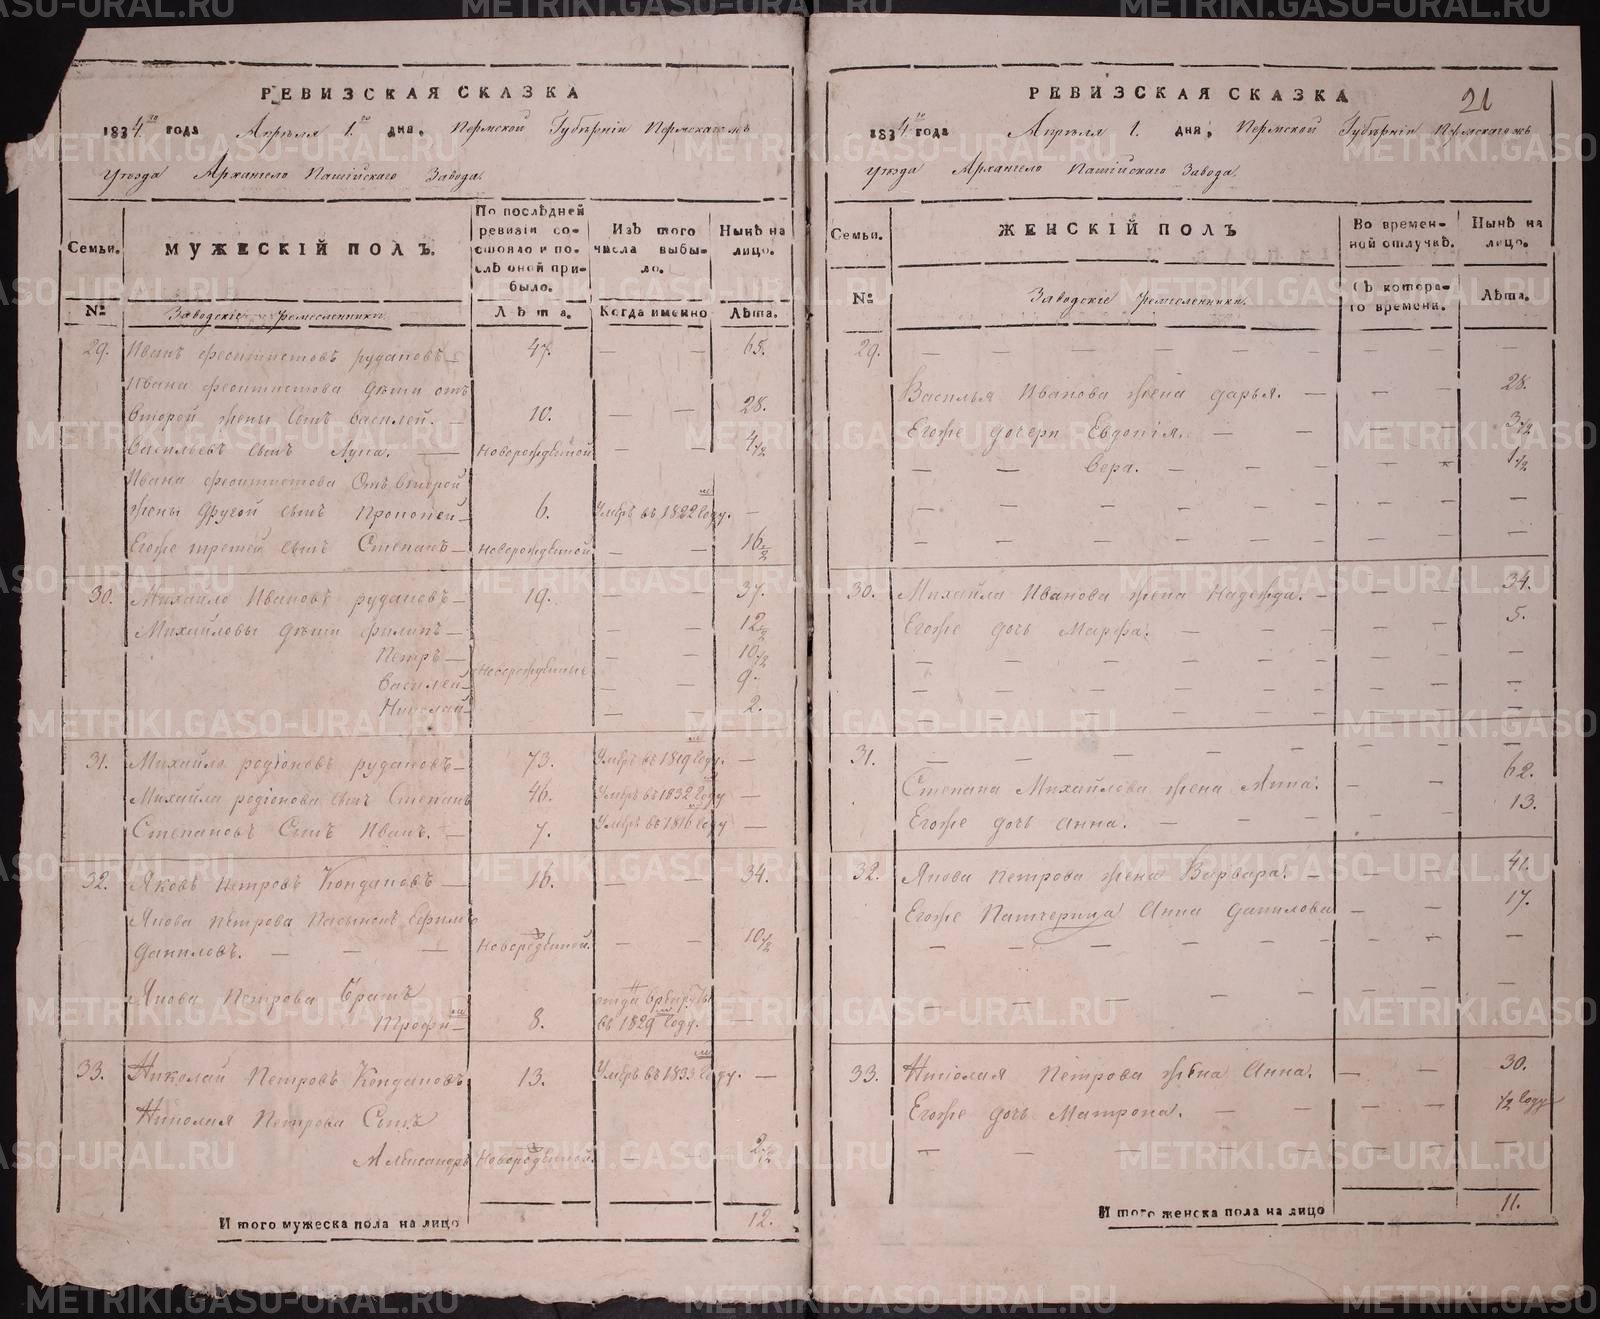 РЕВИЗСКАЯ СКАЗКА
1834го года Апреля 1го дня, Пермской Губернiи Пермскагожъ
уѣзда Архангело Пашiйскаго Завода.
Семьи.
МУЖЕСКIЙ ПОЛЪ.
По послѣдней ревизiи состояло и послѣ оной прибыло.
Изъ того числа выбыло.
Нынѣ на лицо.
№
Заводскiе ремесленники.
Лѣта.
Когда именно
Лѣта.
29. Иванъ Феоктистовъ Рудаковъ — 47. — — 65.
Ивана Феоктистова дѣти отъ
второй жены Сынъ Василей. — 10. — — 28.
Васильевъ сынъ Лука. — новорожденой — — 4 1/2
Ивана Феоктистова Отъ второй
жены другой сынъ Прокопей — 6. Умеръ въ 1822м году. —
Егоже третей сынъ Степанъ — новорожденой — — 16 1/2
30. Михайло Ивановъ Рудаковъ — 19. — — 37.
Михайловы дѣти Филипъ — — — 12 1/2
Петръ — новорожденые — — 10 1/2
Василей — — — 9.
Николай — — — 2.
31. Михайло Родiоновъ Рудаковъ — 73. Умеръ въ 1819м году. —
Михайла Родiонова сынъ Степанъ 46. Умеръ въ 1832м году —
Степановъ Сынъ Иванъ. — 7. Умеръ въ 1816м году —
32. Яковъ Петровъ Кондаковъ — 16. — — 34.
Якова Петрова Пасынокъ Ефимъ
Даниловъ. — — — Новорожденой. — — 10 1/2
Якова Петрова Братъ
Трофимъ — 8. отданъ в рекруты
въ 1829м году. —
33. Николай Петровъ Кондаковъ 13. Умеръ въ 1833м году. —
Николая Петрова Сынъ
Александръ Новорожденой. — — 2 1/2
Итого мужеска пола на лицо 12.
РЕВИЗСКАЯ СКАЗКА
21
1834го года Апреля 1. дня, Пермской Губернiи Пермскагожъ
уѣзда Архангело Пашiйскаго Завода.
Семьи.
ЖЕНСКIЙ ПОЛЪ
Во временной отлучкѣ.
Нынѣ на лицо.
№
Заводскiе ремесленники.
Съ котораго времени.
Лѣта.
29. — — — — — — — —
Василья Иванова жена Дарья. — — — 28.
Егоже дочери Евдокiя. — — — — 3 1/2
— — Вера. — — — — 1 1/2
30. Михайла Иванова жена Надежда. — — — 34.
Егоже дочь Марфа. — — — — 5.
31. — — — — — — — —
Степана Михайлова жена Анна. — — 62.
Егоже дочь Анна. — — — — — 13.
32. Якова Петрова жена Варвара. — — — 41.
Егоже Патчерица Анна Данилова — — 17.
33. Николая Петрова жена Анна. — — 30.
Егоже дочь Матрона. — — — — 1/2 году
Итого женска пола на лицо 11.
METRIKI.GASO-URAL.RU